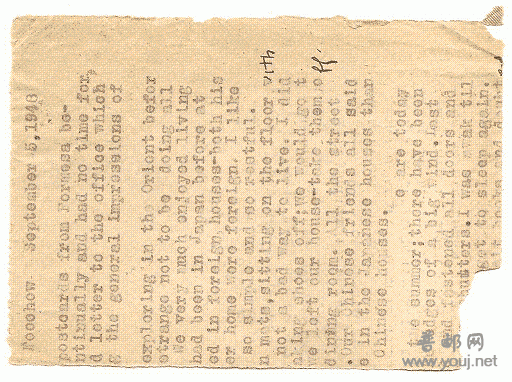 Foochow September 5,1948
postcards from Formosa be-
ntinually and had no time for
d letter to the office which
g the general impressions of
exploring in the Orient befor
strange not to be doing all
We very much enjoyed living
had been in Japan before at
ed in foreign houses-both his
er home were foreign. I like
so simple and so restful.
n mts,sitting on the floor with
not a bad way to live. I did
aking shoes off;we would go t
we left our house-take them off
dining room. ll the street
.Our Chinese friends all said
e in the Japanese houses than
Chinese houses.
e are today
t e summer:there have been
ges of a big wind.Last
nd fastened all doors and
utters.I was awak til
get to sleep again.
善邮网
www.youj.net